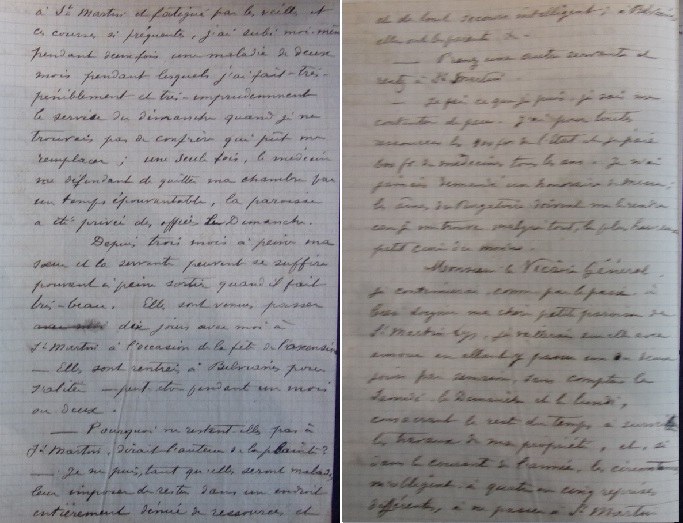 à St Martin et fatigué par les veilles et
ces courses si fréquentes, j'ai subi moi-même
pendant deux fois une maladie de deux
mois pendant lesquels j'ai fait très-
péniblement et très-imprudemment
le service du dimanche quand je ne
trouvais pas de confrère qui pût me
remplacer ; une seule fois, le médecin
me défendant de quitter ma chambre par
un temps épouvantable, la paroisse
a été privée des offices le Dimanche.
Depuis trois mois à peine ma
sœur et la servante peuvent se suffire
pouvant à peine sortir quand il fait
très-beau. Elles sont venues passer
dix jours avec moi à
St Martin à l'occasion de la fête de l'Ascension
— Elles sont rentrées à pour
— peut-être pendant un mois
ou deux.
— Pourquoi ne restent-elles pas à
St Martin, dirait l'auteur de la plainte ?
— Je ne puis, tant qu'elles seront malades,
leur imposer de rester dans un endroit
entièrement dénué de ressources et
et de tout secours intelligent ; à
elles ont le
— Prenez une autre servante et
restez à St Martin
— Je fais ce que je puis, je sais me
contenter de peu. J'ai pour toutes
ressources les de l'état et je paie
de médecins tous les ans. Je n'ai
jamais demandé un honoraire de messe ;
les âmes du Purgatoire
et je me trouve, malgré tout, le plus heureux
petit curé du monde.
Monsieur le Vicaire Général,
je continuerai, comme par le passé, à
bien soigner ma chère petite paroisse de
St Martin je veillerai sur elle avec
amour en allant y passer un ou deux
jours par semaine, sans compter le
samedi, le Dimanche et le lundi,
consacrant le reste du temps à surveiller
les travaux de ma propriété, et, si
dans le courant de l'année, les circonstances
m'obligent à quatre ou cinq reprises
différentes, à ne passer à St Martin